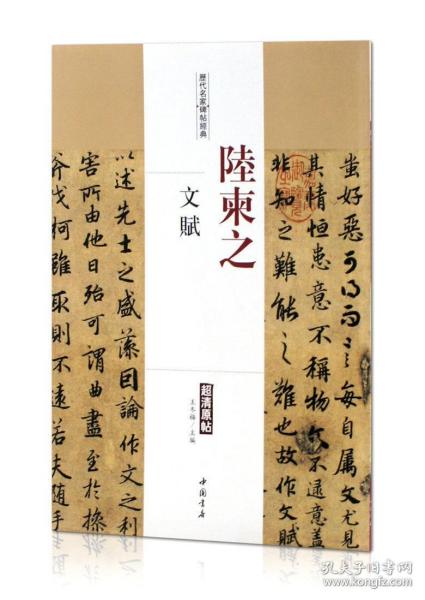 歷代名家碑帖經典
陸柬之
文賦
超清原帖
王冬梅/主編
中国書店
蚩好惡可得而言每自属文尤見
其情恒患意不稱物文不逮意盖
非知之難能之難也故作文賦
以述先士之盛藻因論作文之利
害所由他日殆可謂曲盡至於操
斧伐柯雖取則不遠若夫随手
孔夫子旧书网
kongfz.com